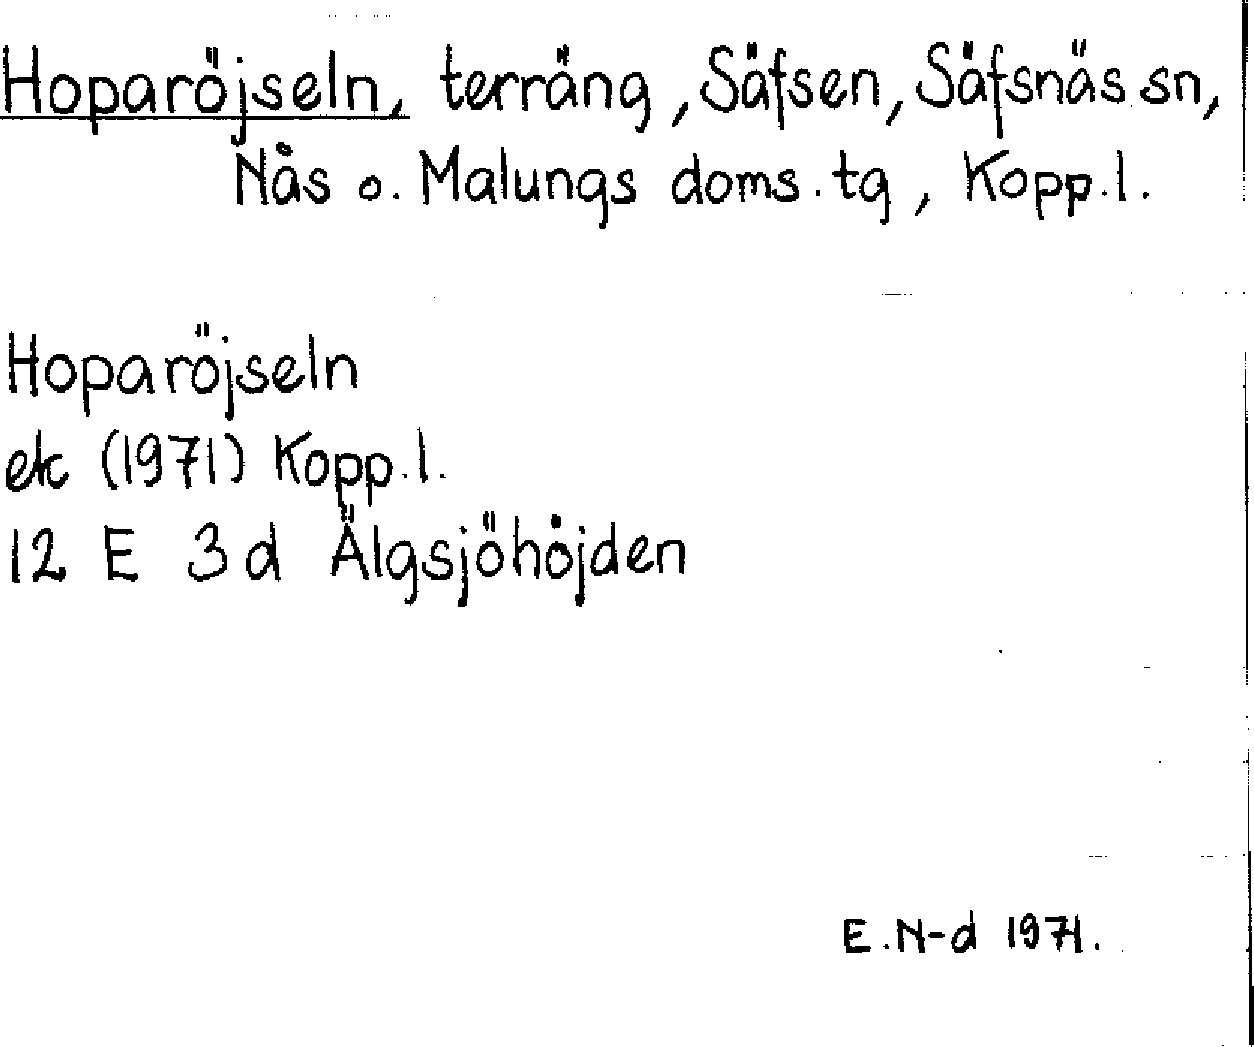 Hoparöjseln, terräng, Säfsen, Säfsnäs sn,
Nås o. Malungs doms. tg, Kopp.l.
Hoparöjseln
ek (1971) Kopp.l.
12 E 3d Älgsjöhöjden
E.N-d 1971.